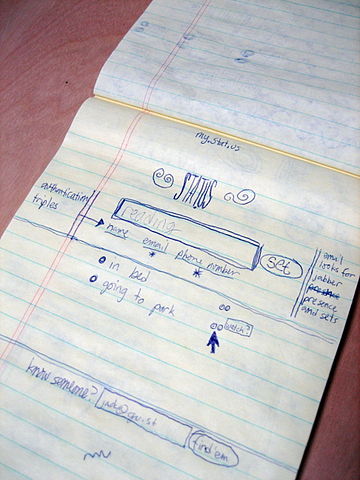 my.stat.us
STATUS
authentication
triples
reading
name email phone number
set
in bed
going to park
watch?
looks for
jabber
presence
presence
and sets
know someone?
find'em